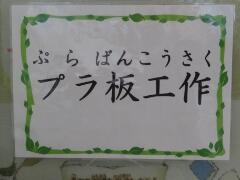 ぷらばんこうさく
プラ板工作